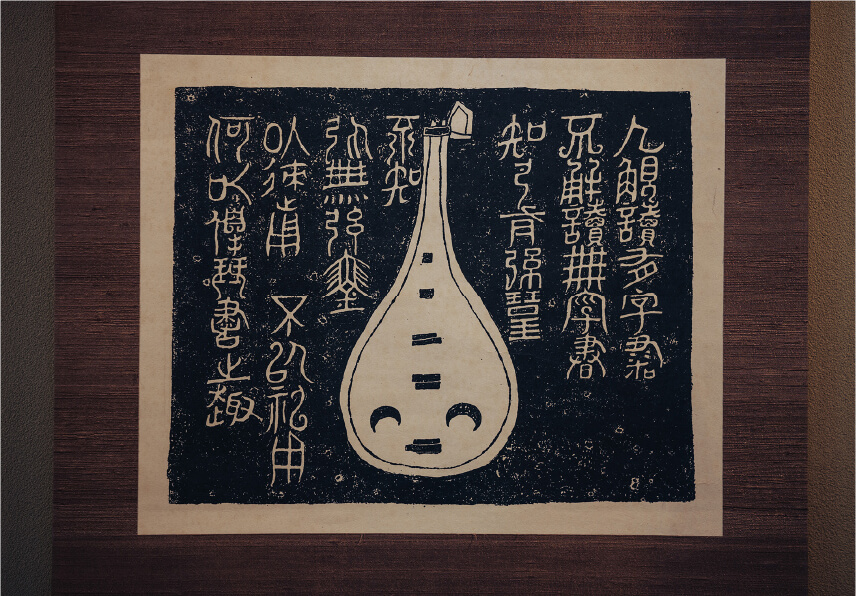 人解讀有字書
不解讀無字書
知彈有弦琴
不知
彈無弦琴
以迹用 不以神用
何以得琴書之趣